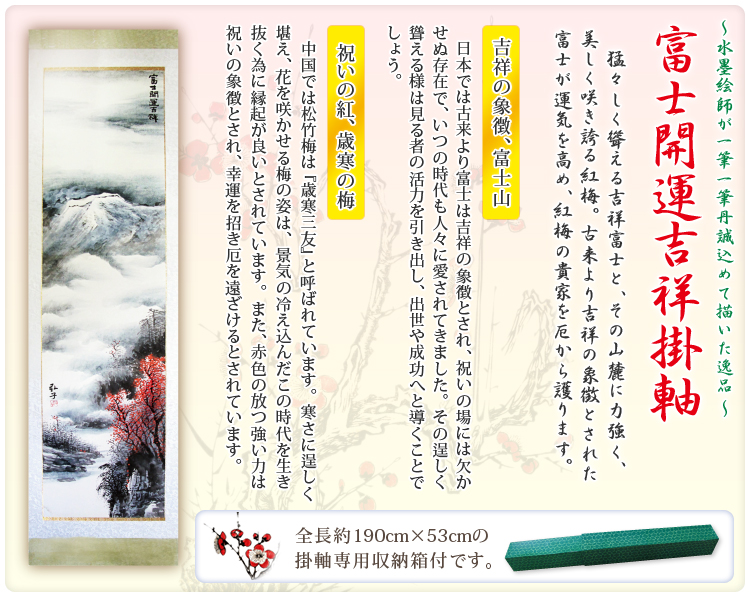 ～水墨絵師が一筆一筆丹誠込めて描いた逸品～
富士開運吉祥掛軸
猛々しく聳える吉祥富士と、その山麓に力強く、
美しく咲き誇る紅梅。古来より吉祥の象徴とされた
富士が運気を高め、紅梅の貴家を厄から護ります。
吉祥の象徴、富士山
日本では古来より富士は吉祥の象徴とされ、祝いの場には欠か
せぬ存在で、いつの時代も人々に愛されてきました。その逞しく
聳える様は見る者の活力を引き出し、出世や成功へと導くことで
しょう。
祝いの紅、歳寒の梅
中国では松竹梅は『歳寒三友』と呼ばれています。寒さに逞しく
堪え、花を咲かせる梅の姿は、景気の冷え込んだこの時代を生き
抜く為に縁起が良いとされています。また、赤色の放つ強い力は
祝いの象徴とされ、幸運を招き厄を遠ざけるとされています。
富士開運吉祥
全長約190cm×53cmの
掛軸専用収納箱付です。